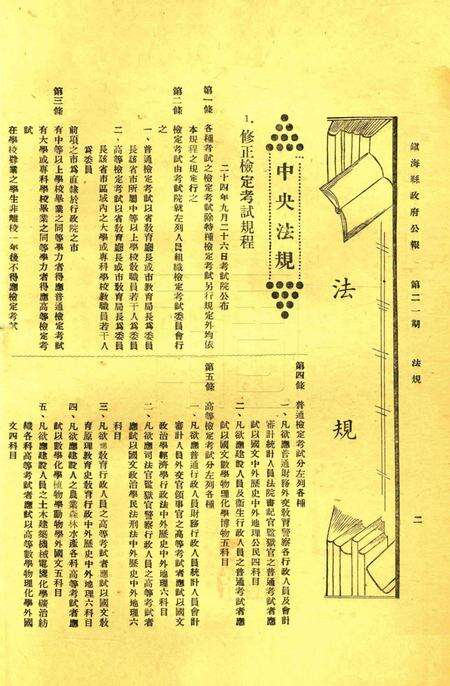 鎮海縣政府公報　第二一期　法規　二
法規
中央法規
1. 修正檢定考試規程
二十四年九月二十六日考試院公布
第一條　各種考試之檢定考試除特種檢定考試另行規定外均依
本規程之規定行之
第二條　檢定考試由考試院就左列人員組織檢定考試委員會行
之
一、普通檢定考試以省敎育廳長或市敎育局長爲委員
長該省市所屬中等以上學校敎職員若干人爲委員
二、高等檢定考試以省敎育廳長或市敎育局長爲委員
長該省市區域內之大學或專科學校敎職員若干人
爲委員
前項之市爲直隸於行政院之市
第三條　有中等以上學校畢業之同等學力者得應普通檢定考試
有大學或專科學校畢業之同等學力者得應高等檢定考
試
在學校肄業之學生非離校一年後不得應檢定考試
第四條　普通檢定考試分左列各種
一、凡欲應普通財務外交敎育警察各行政人員及會計
審計統計人員法院書記官監獄官之普通考試者應
試以國文中外歷史中外地理公民四科目
二、凡欲應建設人員及衞生行政人員之普通考試者應
試以國文數學物理化學博物五科目
第五條　高等檢定考試分左列各種
一、凡欲應普通行政人員財務行政人員統計人員會計
審計人員外交官領事官之高等考試者應試以國文
政治學經濟學行政法中外歷史中外地理六科目
二、凡欲應司法官監獄官警察行政人員之高等考試者應
試以國文政治學民法刑法中外歷史中外地理六
科目
三、凡欲應敎育行政人員之高等考試者應試以國文敎
育原理敎育史敎育行政中外歷史中外地理六科目
四、凡欲應建設人員之農業森林水產各科高等考試者應
試以數學化學植物學動物學外國文五科目
五、凡欲應建設人員之土木建築機械電機化學礦冶紡
織各科高等考試者應試以高等數學物理化學外國
文四科目